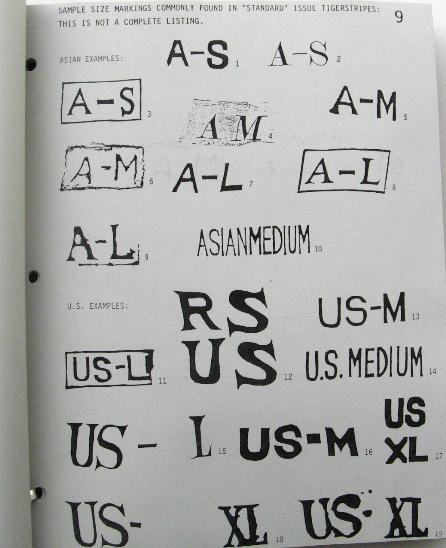 SAMPLE SIZE MARKINGS COMMONLY FOUND IN "STANDARD" ISSUE TIGERSTRIPES:
THIS IS NOT A COMPLETE LISTING.
9
ASIAN EXAMPLES:
A-S 1
A-S 2
A-S 3
A M 4
A-M 5
A-M 6
A-L 7
A-L 8
A-L 9
ASIAN MEDIUM 10
U.S. EXAMPLES:
RS
US 12
US-M 13
US-L 11
U.S. MEDIUM 14
US - L 15
US-M 16
US
XL 17
US- XL 18
US- XL 19